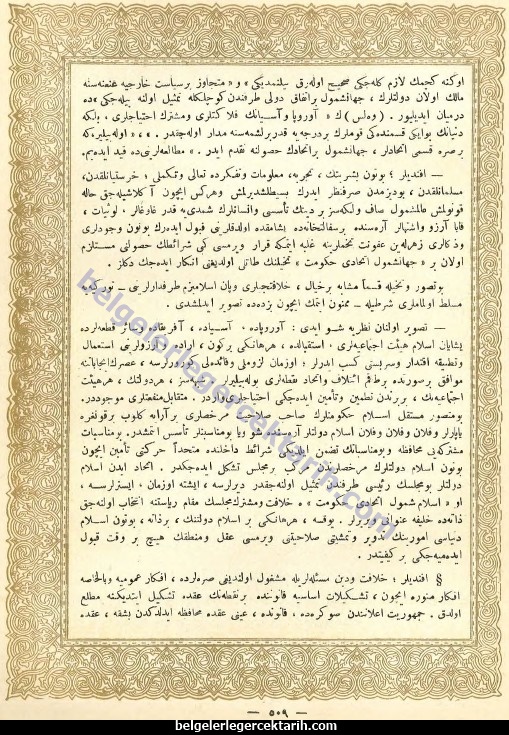 اوكنه كچمك لازم كله‌جكی صحیح اوله‌رق بیلنمدیكی» و «متجاوز برسیاست خارجیه عنعنه‌سنه
مالك اولان دولتلرك ، جهانشمول براتفاق دولی طرفندن كوچلكله تمثیل اولنه بیله‌جكی» ده
درمیان ایدیلیور. (وه‌لس) ك « آوروپا وآسیانك فلاكتلری ومشترك احتیاجلری . بلكه
دنیانك بو ایكی قسمنده‌كی قوملرك بردرجه‌یه قدر برلشمه‌سنه مدار اوله‌جقدر .» ، « اوله‌بیلیركه
بر صره قسمی اتحادلر ، جهانشمول براتحادك حصولنه تقدم ایدر .» مطالعه‌لرینی‌ده قید ایده‌یم.
— افندیلر ؛ بوتون بشریتك ، تجربه، معلومات وتفكرده تعالی وتكملی ؛ خرستیانلقدن،
مسلمانلقدن ، بودیزمدن صرفنظر ایدرك بسیطلشدیرلمش وهركس ایچون آكلاشیله‌جق حاله
قونولمش عالمشمول صاف ولكه‌سز بر دینك تأسسی وانسانلرك شمدی‌یه قدر غاوغالر ، لوثیات ،
قابا آرزو واشتهالر آره‌سنده بر سفالتخانه‌ده یشامقده اولدقلرینی قبول ایده‌رك بوتون وجودلری
وذكالری زهرله‌ین عفونت تخملرینه غلبه ایتمكه قرار ویرمسی كی شرائطك حصولنی مستلزم
اولان بر «جهانشمول اتحادی حكومت» تخیلنك طاتلی اولدیغنی انكار ایده‌جك دكلز .
بو تصور وتخیله قسماً مشابه بر خیال ، خلافتجیلری وپان اسلامیزم طرفدارلرینی — توركیه‌یه
مسلط اولماملری شرطیله — ممنون ایتمك ایچون بزده‌ده تصویر ایدلمشدی .
— تصویر اولنان نظریه شو ایدی : آوروپاده ، آسیاده ، آفریقاده وسائر قطعه‌لرده
یشایان اسلام هیئت اجتماعیه‌لری ، استقبالده ، هرهانكی بركون ، اراده وآرزولرینی استعمال
وتطبیقه اقتدار وسربستی كسب ایدرلر ؛ اوزمان لزوملی وفائده‌لی كورورلرسه ، عصرك ایجاباتنه
موافق برصورتده برطاقم ائتلاف واتحاد نقطه‌لری بوله‌بیلیرلر . شبهه‌سز ، هردولتك ، هرهیئت
اجتماعیه‌نك ، بربرندن تطمین وتأمین ایده‌جكی احتیاجلری واردر . متقابل منفعتلری موجوددر.
بومتصور مستقل اسلام حكومتلرك صاحب صلاحیت مرخصلری برآرایه كلوب برقونغره
یاپارلر وفلان وفلان وفلان اسلام دولتلر آره‌سنده شو ویا بو مناسبتلر تأسس ایتمشدر. بومناسبات
مشتركه‌یی محافظه وبومناسباتك تضمن ایلدیكی شرائط داخلنده متحداً حركتی تأمین ایچون
بوتون اسلام دولتلرك مرخصلرندن مركب بر مجلس تشكل ایده‌جكدر . اتحاد ایدن اسلام
دولتلر بومجلسك رئیسی طرفندن تمثیل اوله‌جقدر دیرلرسه ، ایشته اوزمان ، ایسترلرسه ،
او «اسلام شمول اتحادی حكومت» ، ه خلافت ومشترك مجلسك مقام ریاستنه انتخاب اولنه‌جق
ذاته‌ده خلیفه عنوانی ویریرلر . یوقسه ، هرهانكی بر اسلام دولتنك ، برذاته ، بوتون اسلام
دنیاسی امورینك تدویر وتمشیتی صلاحیتنی ویرمسی عقل ومنطقك هیچ بر وقت قبول
ایده‌میه‌جكی بر كیفیتدر .
§ افندیلر ؛ خلافت ودین مسئله‌لریله مشغول اولندیغی صره‌لرده ، افكار عمومیه وبالخاصه
افكار منوره ایچون ، تشكیلات اساسیه قانوننده بر نقطه‌نك عقده تشكیل ایتدیكنه مطلع
اولدق . جمهوریت اعلانندن صوكره‌ده ، قانونده ، عینی عقده محافظه ایدلدكدن بشقه ، عقده
— ٥٠٩ —
belgelerlegercektarih.com
belgelerlegercektarih.com